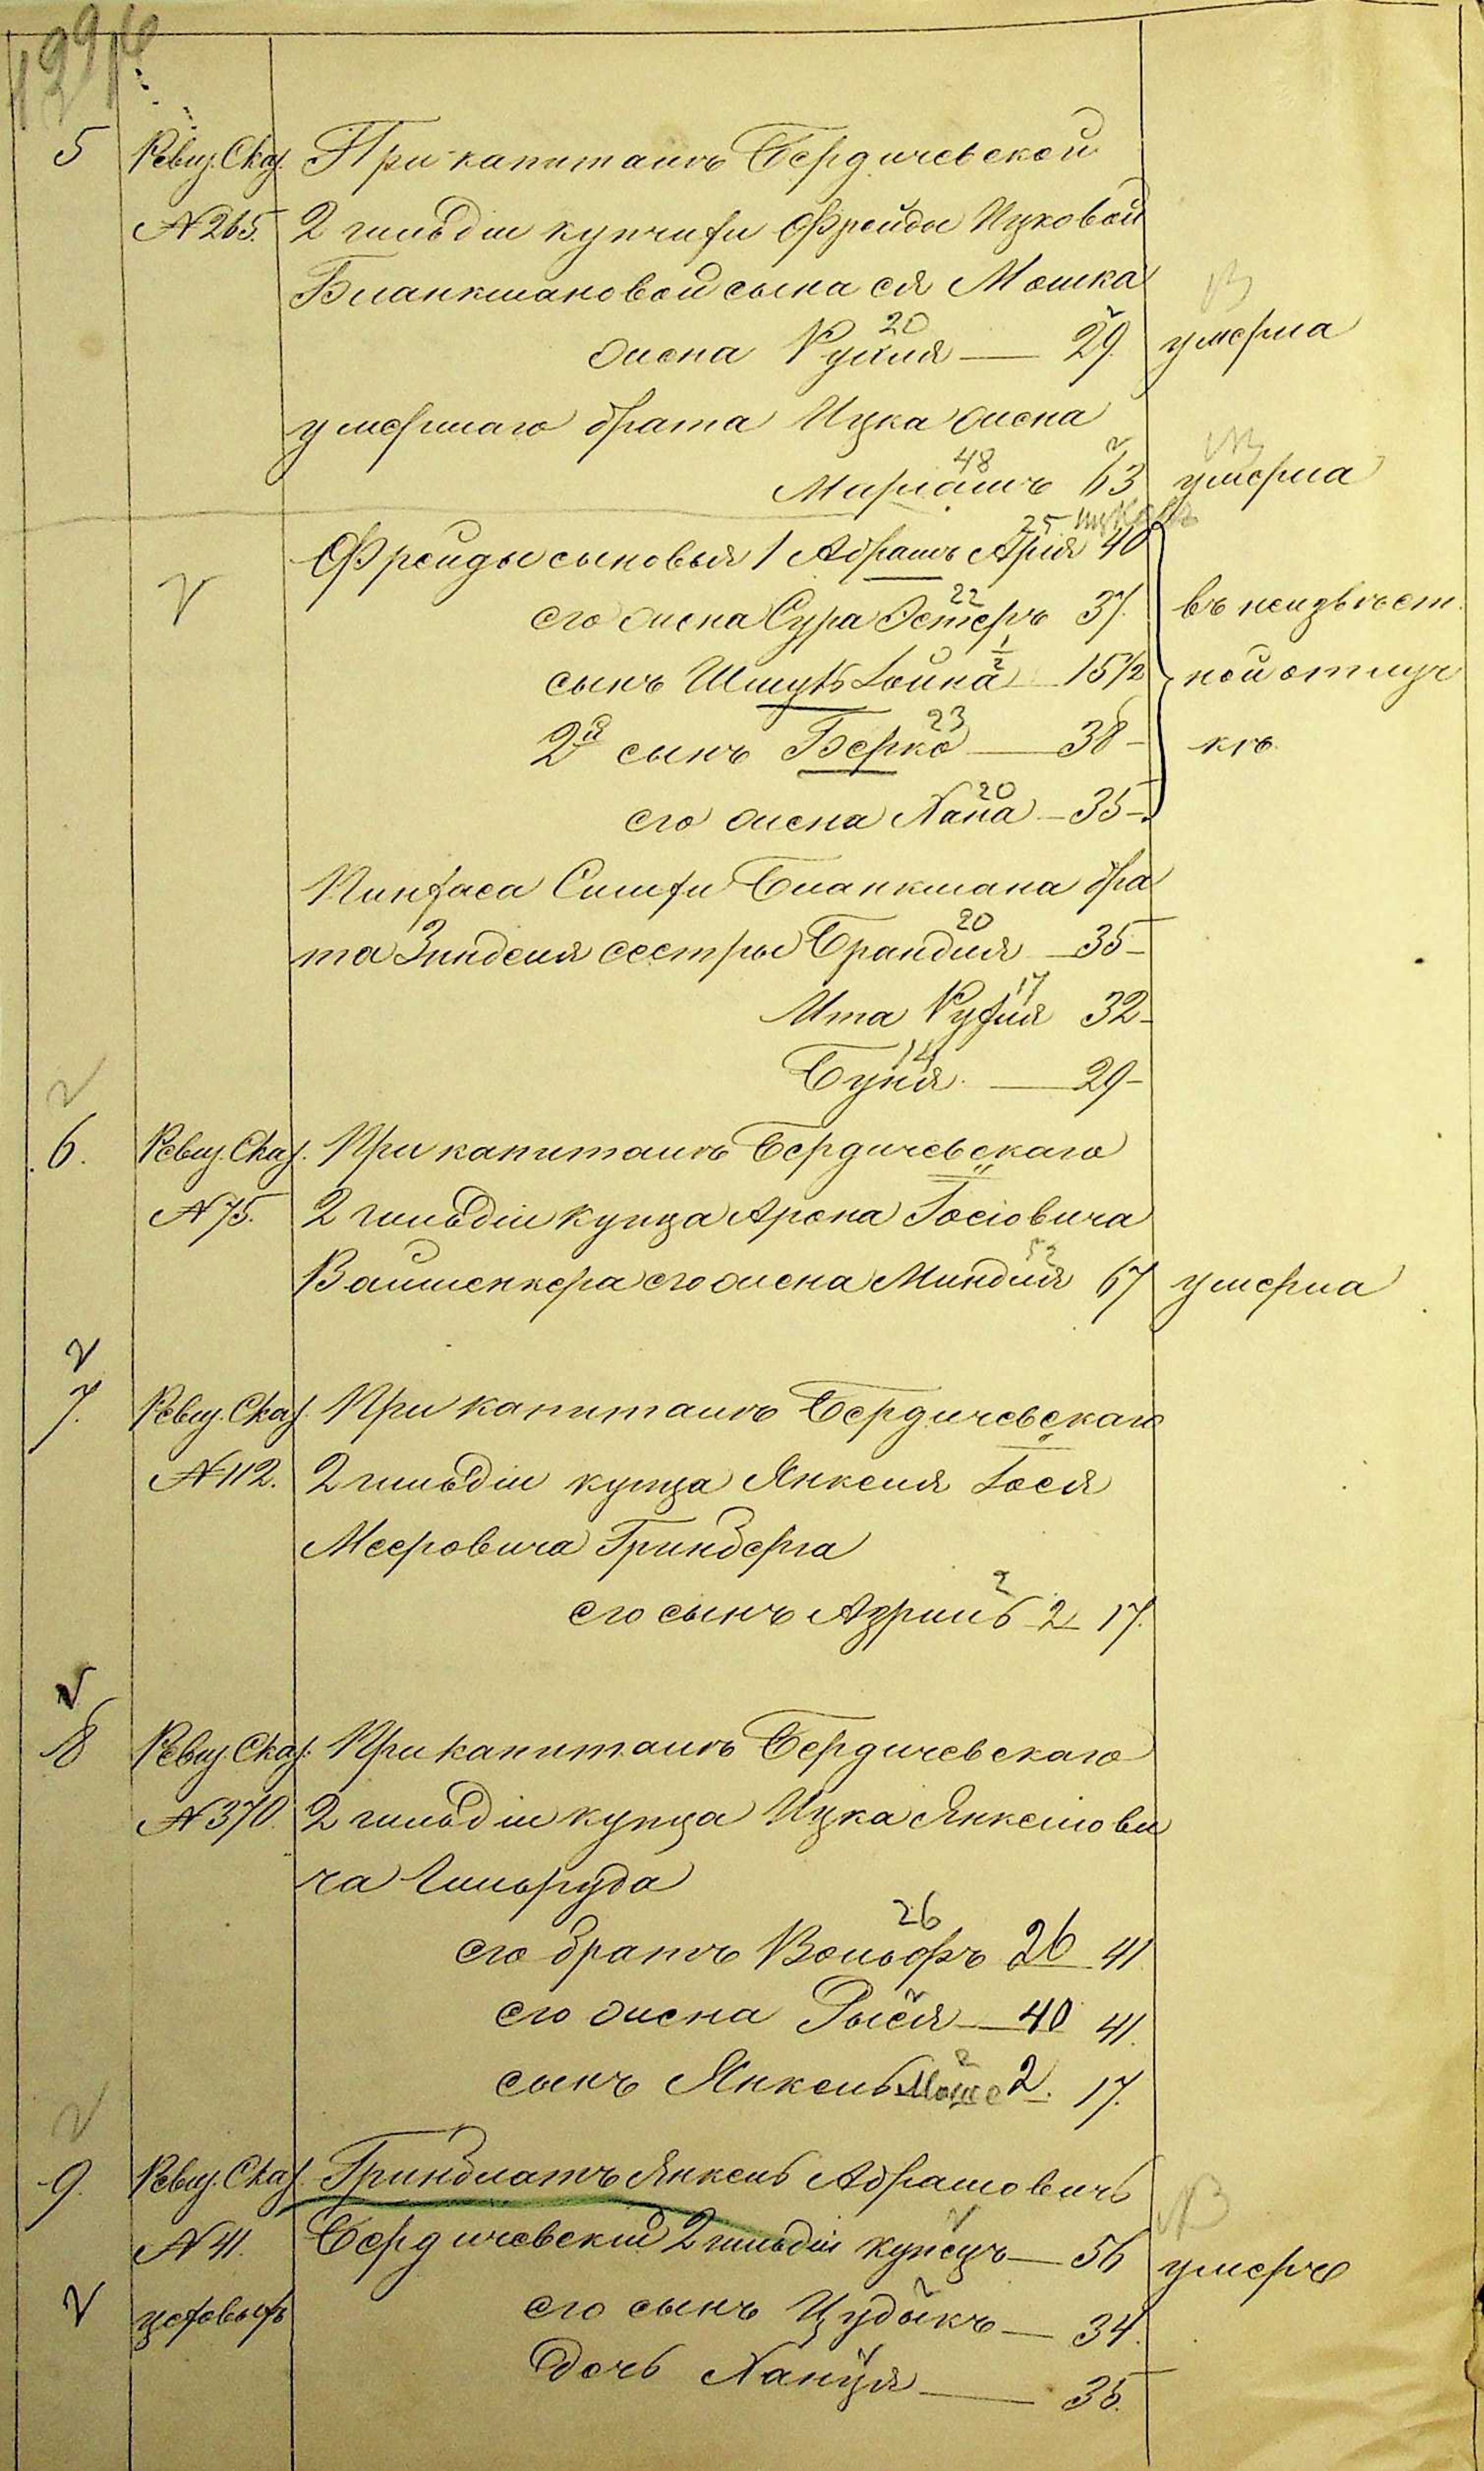 5 Ревиз. Сказ. При капиталѣ Бердичевской
№ 265. 2 гильдіи купчихи Фрейды Ицковой
Бланкмановой сына ея Мошка
20
жена Рухля — 29. умерла
умершаго брата Ицка жена
48
Маріамъ 63 умерла
25
Фрейды сыновья 1 Абрамъ Арія 40
22
его жена Сура Эстеръ 37. въ неизвѣст
1/2
сынъ Шмуль Іойна 15 1/2 ной отлуч
23
2й сынъ Берко — 38 – кѣ.
20
его жена Хана – 35 –
Пинхаса Симхи Бланкмана бра
20
та Зинделя сестры Брандля — 35 –
17
Ита Рухля 32 –
14
Буня. — 29 –
6. Ревиз. Сказ. При капиталѣ Бердичевскаго
№ 75. 2 гильдіи купца Арона Іосіовича
52
Вайшенкера его жена Миндля 67 умерла
7. Ревиз. Сказ. При капиталѣ Бердичевскаго
№ 112. 2 гильдіи купца Янкеля Іося
Мееровича Гринберга
2
его сынъ Азріиль 2 17.
8 Ревиз. Сказ. При капиталѣ Бердичевскаго
№ 370. 2 гильдіи купца Ицка Янкеліови
ча Гильруда
26
его братъ Вольфъ 26 41
его жена Рыся — 40 41.
2
сынъ Янкель Моше 2. 17.
9. Ревиз. Сказ. Гринблатъ Янкель Абрамовичъ
№ 41. Бердичевскій 2 гильдіи купецъ — 56 умеръ
цеховыхъ его сынъ Цудыкъ — 34.
дочь Ханця — 35.